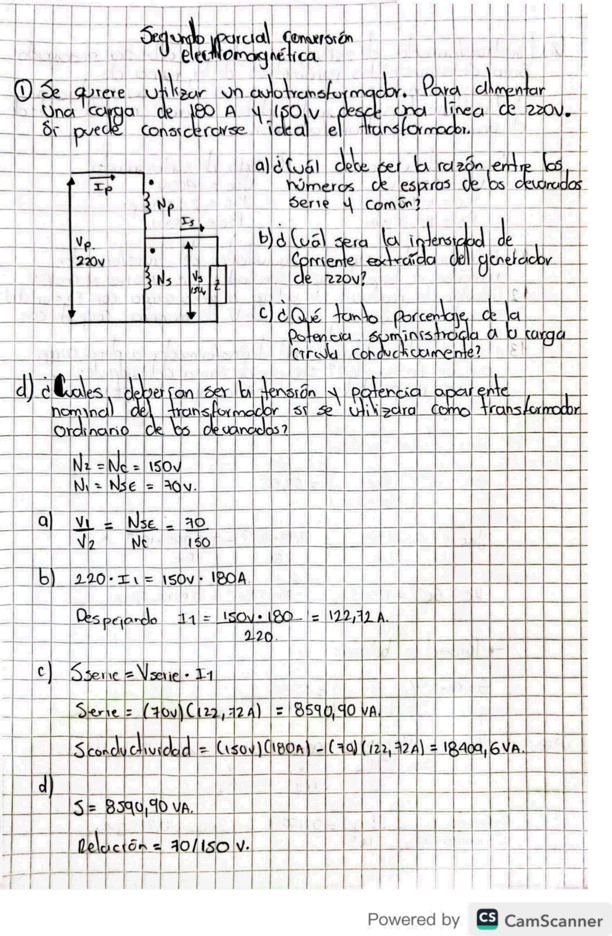 Segundo parcial conversión
electromagnética.
① Se quiere utilizar un autotransformador. Para alimentar
Una carga de 180 A y 150 v desde una línea de 220V.
Si puede considerarse ideal el transformador.
a) ¿Cuál debe ser la razón entre los
números de espiras de los devanados
serie y común?
Ip
Np
Is
Vp.
220V
Ns
Vs
150v
Z
b) ¿Cuál sera la intensidad de
Corriente extraída del generador
de 220v?
c) ¿Qué tanto porcentaje de la
Potencia suministrada a la carga
Circula conductivamente?
d) ¿Cuales deberían ser la tensión y potencia aparente
nominal del transformador si se utilizara como transformador
ordinario de los devanados?
N2 = Nc = 150V
N1 = NSE = 70V.
a) V1/V2 = NSE/Nc = 70/150
b) 220 · I1 = 150V · 180A
Despejando I1 = 150V · 180 / 220. = 122,72 A.
c) Sserie = Vserie · I1
Serie = (70V)(122,72A) = 8590,90 VA.
Sconductividad = (150V)(180A) - (70)(122,72A) = 18409,6VA.
d)
S = 8590,90 VA.
Relación = 70/150 V.
Powered by CS CamScanner